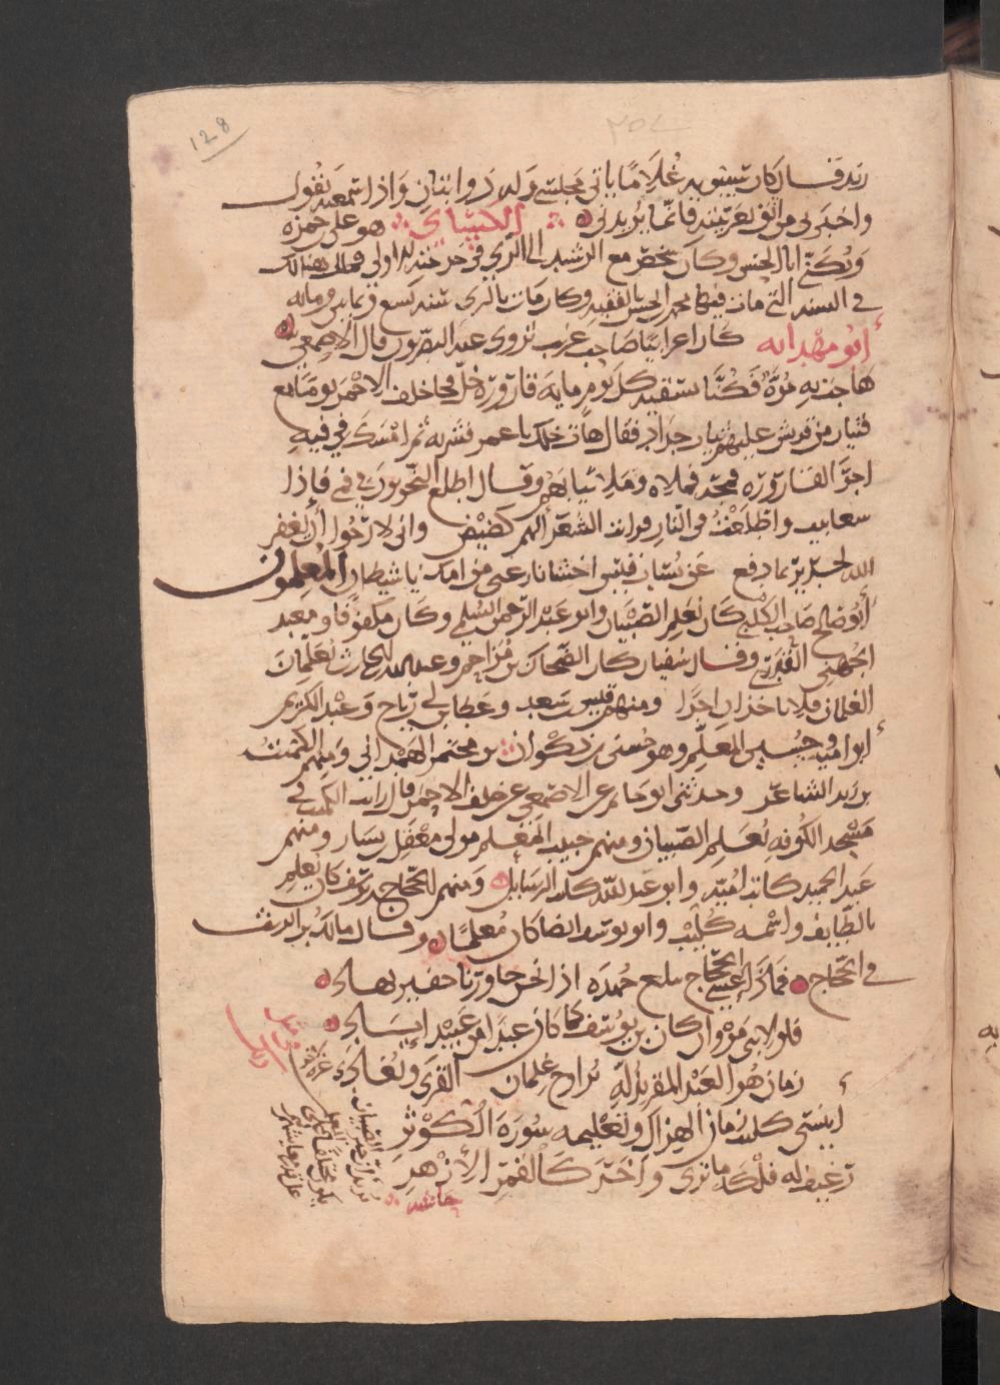 128
زيد قال كان سيبويه غلاما ياتي مجلسي وله ذوابتان واذا سمعته يقول
واخبرني من اثق لعربيته فانما يريدني الكسائي هو على حمزه
ويكنى ابا الحسن وكان شخص مع الرشيد الى الري في خرجته الاولى فمات هنالك
في السنه التي مات فيها محمد الحسن الفقيه وكان مات بالري سنه تسع وثمانين ومايه
ابو مهديه كان اعرابيا صاحب غريب يروى عنه البصريون قال الاصمعي
هاجت به مرة فكنا نسقيه كل يوم مايه قارورة خل فجا خلف الاحمر يوما مع
فتيان من قريش عليهم ثياب جداد فقال هات خلك يا عمر فشربه ثم امسكه في فيه
اجرّ القارورة فمجّه فملاه وملا ثيابهم وقال اطلع النحويون في فاذا
سعابيب واطلعت في النار فرايت الشعرا لهم كصيص واني لارجوا ان يغفر
الله لجرير بما دفع عن نسيات قيس اخسانا رعى من امك يا شيطان المعلمون
ابو صالح صاحب الكلبي كان يعلم الصبيان وابو عبد الرحمن السلمي وكان مكفوفا ومعبد
الجهني القدري وقال سفيان كان الضحاك بن مزاحم وعبد الله الحارث يعلمان
الغلمان فلا ياخذان اجرا ومنهم قيس سعد وعطا بن ابي رباح وعبد الكريم
ابو اميه وحسين المعلم وهو حسين بن ذكوان بن مخيمر الهمداني ومنهم الكميت
بن زيد الشاعر وحدثني ابو حاتم عن الاصمعي عن خلف الاحمر قال رايت الكميت في
مسجد الكوفه يعلم الصبيان ومنهم حبيب المعلم مولى معقل يسار ومنهم
عبد الحميد كاتب اميه وابو عبيد الله كاتب الرسايل ومنهم الحجاج يوسف كان يعلم
بالطايف واسمه كليب وابو يوسف ايضا كان معلما وقال مالك بن الريب
في الحجاج فماذا عسى الحجاج يبلغ جهده اذا نحن جاوزنا حفير زياد
فلولا بني مروان كان بن يوسف كما كان عبدا من عبيد اياد
زمان هو العبد المقر بذله يراوح غلمان القرى ويغادي
اينسى كليب زمان الهزال وتعليمه سورة الكوثر
رغيف له فلكه ما ترى واخر كالقمر الازهر
حاشيه